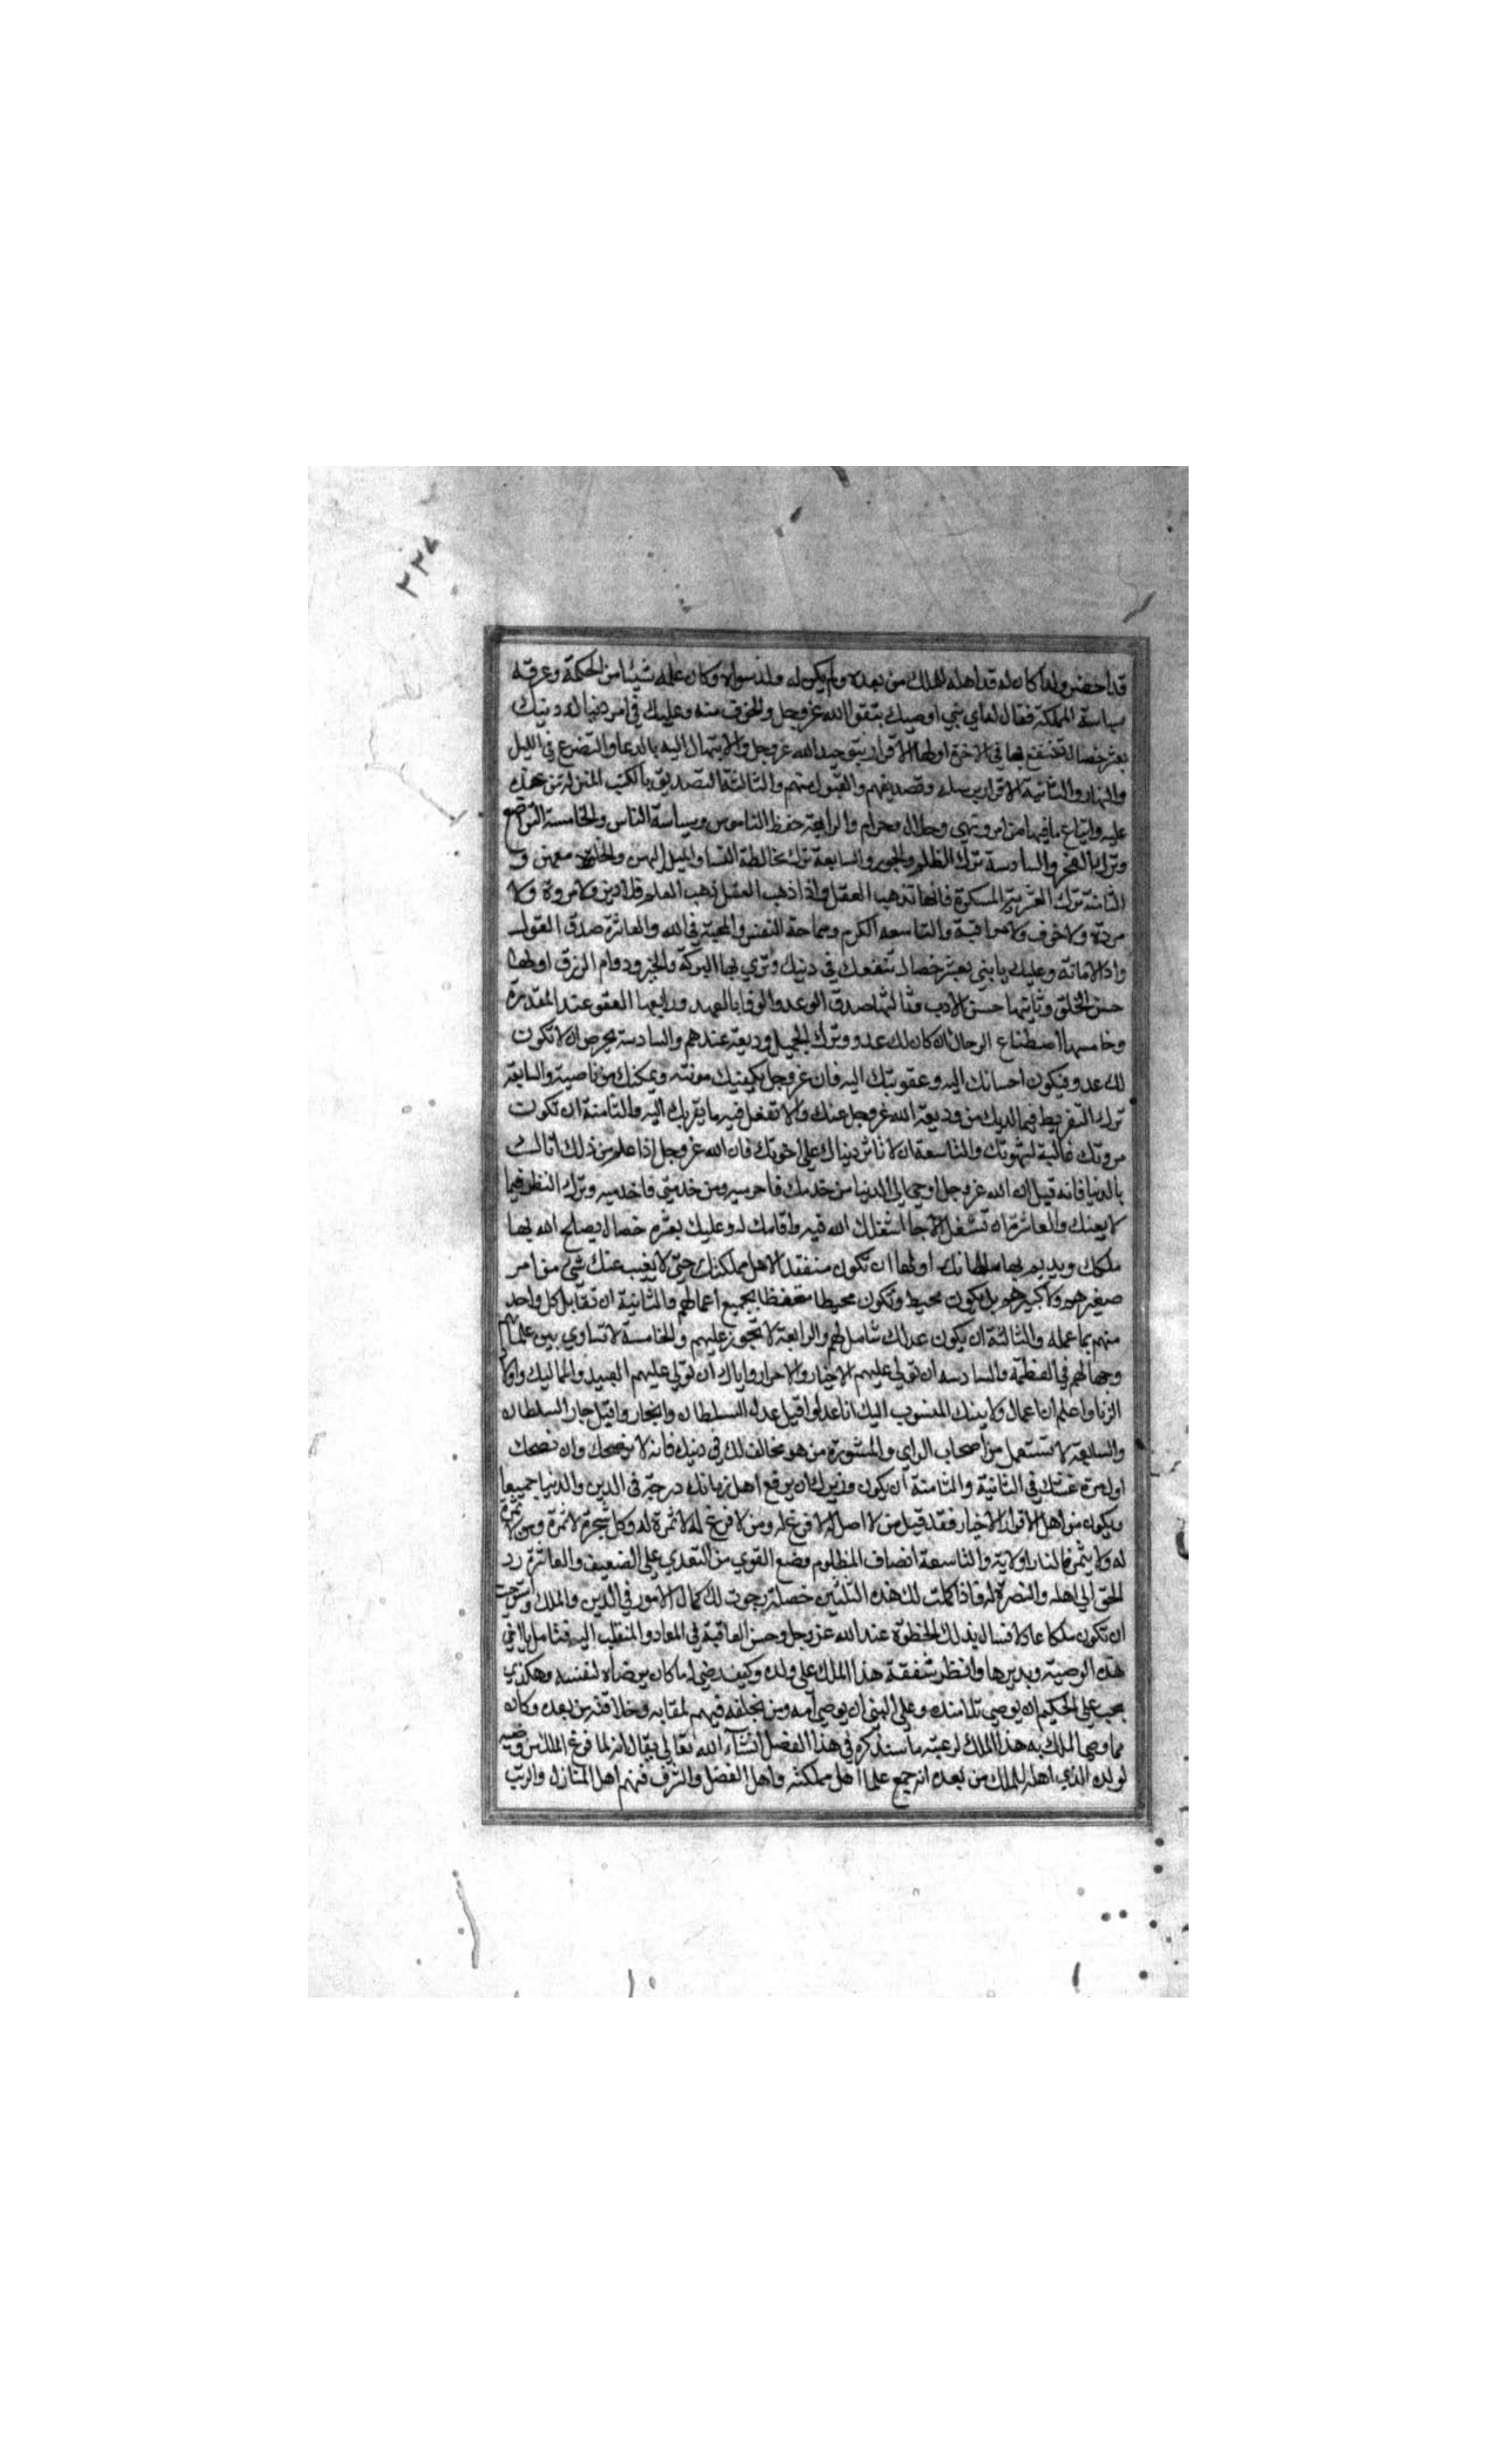 ٢٣٧
قد احضر ولدا كان له قد اهله للملك من بعده ولم يكن له ولد سواه وكان علمه شيئا من الحكمة وعرفه
سياسة المملكة فقال له اي بني اوصيك بتقوا الله عز وجل والخوف منه وعليك في امر دنياك ودينك
بعشر خصال تنتفع بها في الاخرة اولها الاقرار بتوحيد الله عز وجل والابتهال اليه بالدعا والتضرع في الليل
والنهار والثانية الاقرار برسله وتصديقهم والقبول منهم والثالثة التصديق بالكتب المنزلة من عنده
عليه واتباع ما فيها من امر ونهي وحلال وحرام والرابعة حفظ الناموس وسياسة الناس والخامسة التواضع
وترك الفخر والسادسة ترك الظلم والجور والسابعة ترك مخالطة النسا والميل اليهن والخلوة معهن و
الثامنة ترك الاشربة المسكرة فانها تذهب العقل واذا ذهب العقل ذهب العلم فلا دين ولا مروة ولا
مودة ولا خوف ولا مراقبة والتاسعه الكرم وسماحة النفس والمحبة في الله والعاشرة صدق القول
واد الامانة وعليك يا بني بعشر خصال تنفعك في دنيك وتري بها البركة والخير ودوام الرزق اولها
حسن الخلق وثانيها حسن الادب وثالثها صدق الوعد والوفا بالعهد ورابعها العفو عند المقدرة
وخامسها اصطناع الرجال ان كان لك عدو وترك الجميل وديعة عندهم والسادسة تحرص ان لا تكون
لك عدو فيكون احسانك اليه وعقوبتك اليه فان عز وجل يكفيك مونته ويمكنك من ناصيته والسابعة
ترك التفريط فيما لديك من وديعة الله عز وجل عندك ولا تغفل فيه ما يقربك اليه والثامنة ان تكون
مروتك غالبة لشهوتك والتاسعة ان لا تاثر دنياك على اخرتك فان الله عز وجل اذا علم من ذلك
بالدنيا فانه قيل ان الله عز وجل اوحى الي الدنيا من خدمك فاحرميه ومن خدمني فاخدميه وترك النظر فيما
لا يعينك والعاشرة ان تشغل الا بما اشغلك الله فيه واقامك له وعليك بعشرة خصال يصلح الله بها
ملكك ويديم بها سلطانك اولها ان تكون متفقدا لاهل مملكتك حتى لا يغيب عنك شي من امر
صغيرهم ولا كبيرهم بل تكون محيط وتكون محيطا متحفظا بجميع اعمالهم والثانية ان تقابل كل واحد
منهم بما عمله والثالثة ان يكون عدلك شامل لهم والرابعة لا تجوز عليهم والخامسة لا تساوي بين علمائهم
وجهالهم في العظمة والسادسه ان تولي عليهم الاخيار والاحرار واياك ان تولي عليهم العبيد والمماليك واولاد
الزنا واعلم ان اعمال ولايتك المنسوب اليك ان اعدلوا قيل عدل السلطان وان جاروا قيل جار السلطان
والسابعة لا تستعمل من اصحاب الراي والمشورة من هو مخالف لك في دينك فانه لا ينصحك وان نصحك
اول مرة غشك في الثانية والثامنة ان يكون وزيرك ارفع اهل زمانك درجة في الدين والدنيا جميعا
ويكون من اهل الاقوال الاخيار فقد قيل من لا اصل له لا فرع له ومن لا فرع له لا ثمرة له وكل شجرة لا ثمرة ومن لا ثمرة
له ولا يثمر فالنار اولا به والتاسعة انصاف المظلوم ومنع القوي من التعدي على الضعيف والعاشرة رد
الحق الي اهله والنصرة له فاذا كملت لك هذه الثلثين خصلة رجوت لك كمال الامور في الدين والملك واستوجبت
ان تكون ملكا عادلا فتنال بذلك الحظوة عند الله عز وجل وحسن العاقبة في المعاد والمنقلب اليه فتامل يا اخي
هذه الوصية وتدبرها وانظر شفقة هذا الملك على ولده وكيف رضي له ما كان يرضاه لنفسه وهكذي
يجب على الحكيم ان يوصي تلامذته وعلى النبي ان يوصي امته ومن يخلفه فيهم لمقامه وخلافته من بعده وكان
مما وصى الملك به هذا الملك لرعيته ما سنذكره في هذا الفصل انشاء الله تعالى يقال انه لما فرغ الملك من وصيته
لولده الذي اهله للملك من بعده انه جمع علما اهل مملكته واهل الفضل والشرف فمنهم اهل المنازل والرتب